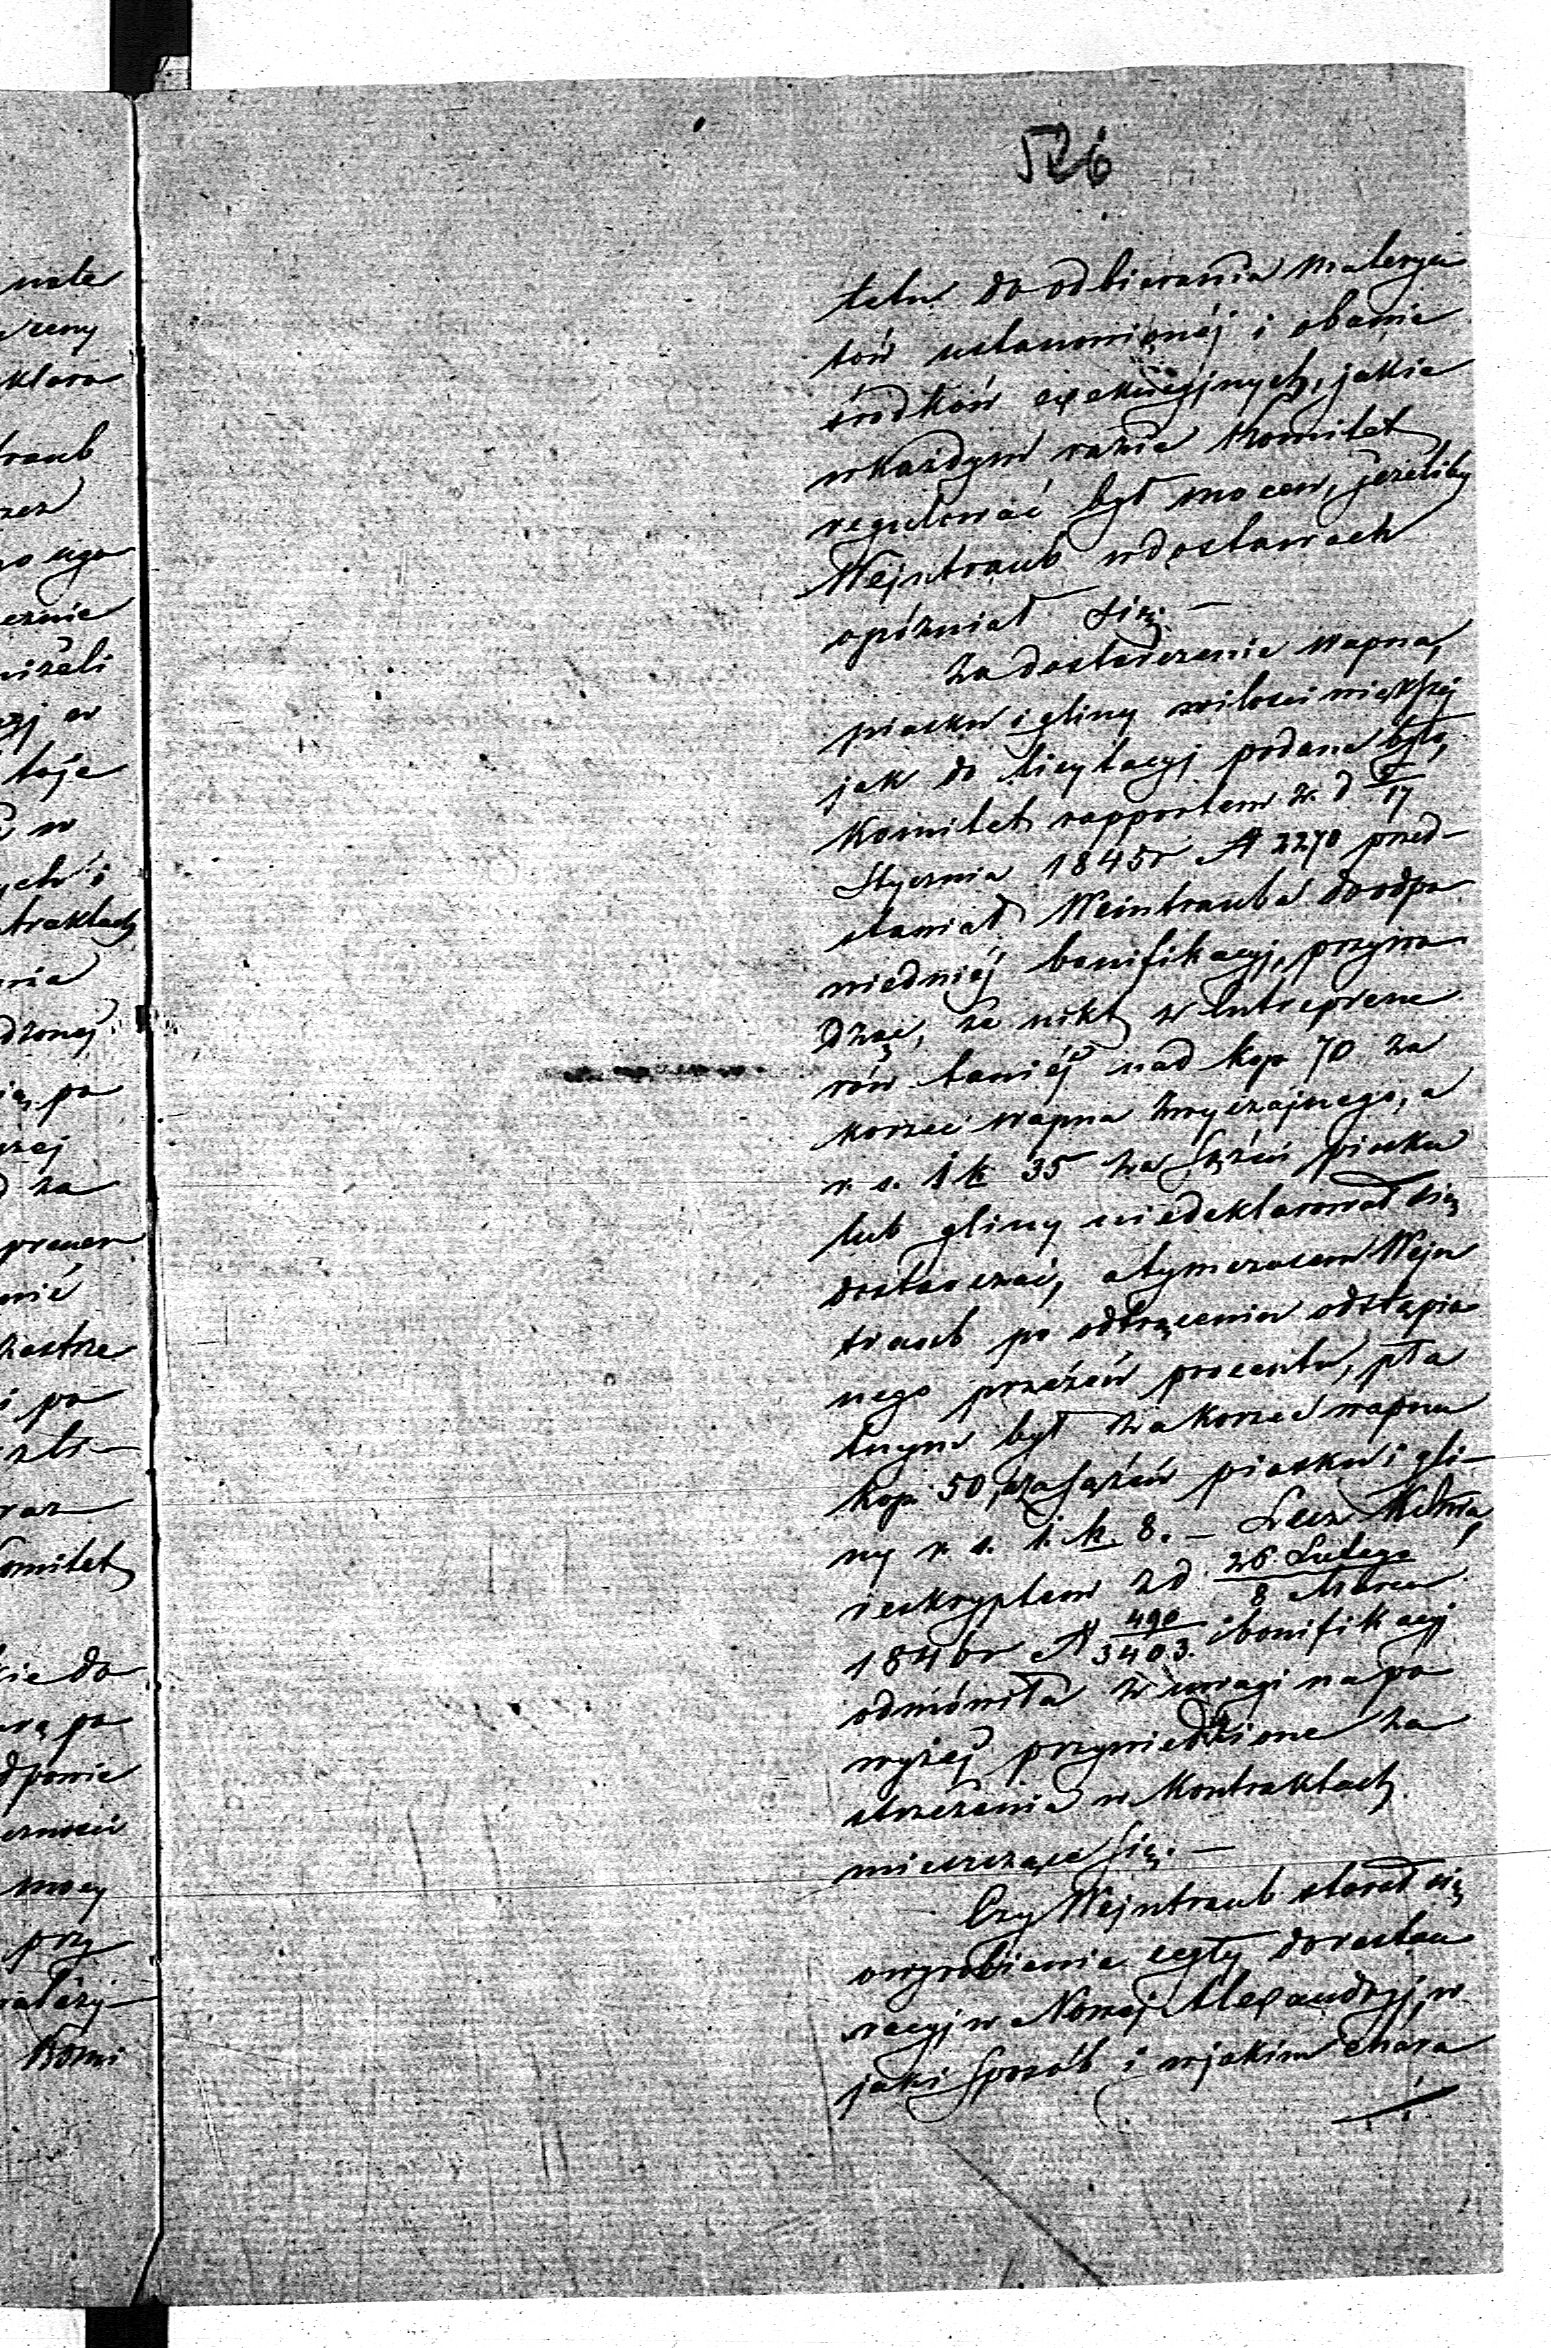 526
tetu do odbierania materya
łów ustanowionéj i obawie
środków exekucyjnych, jakie
wkażdym razie Komitet
regulować był mocen, jeżeliby
Wejntraub wdostawach
opóźniał się. —
Za dostarczenie wapna,
piasku i gliny wilości większéj
jak do licytacyj podana była,
Komitet rapportem z d. 5/17
Stycznia 1845r N 2270 przed-
stawiał Weintrauba do odpo
wiedniéj bonifikacyi, przywo
dząc, że nikt z Entreprene
rów taniéj nad kop. 70 za
korzec wapna zwyczajnego, a
r. s. 1 k 35 za Sążeń piasku
lub gliny niedeklarował się
dostarczać, atymczasem Wejn
traub po odtrąceniu odstąpio
nego przezeń procentu, pła
tnym był za korzec wapna
kop. 50, a za sążeń piasku i gli-
ny r. s. 1. k. 8. — Lecz
reskryptem z d. 26 Lutego / 8 Marca
1846r N 490/3403. bonifikacyj
odmówiła z uwagi na po
wyżej przywiedzione za
strzeżenia w Kontraktach
mieszczące się. —
Czy Wejntraub starał się
owyrobienie cegły do restau
racyj w Nowej Alexandryj, w
jaki sposób i wjakim chara
nate
czeny
klara
traub
zez
ugo
cznie
niżeli
taje
w
ych i
traktach
nia
dzonej
po
szej
za
nić
zastrze
i po
raz
omitet
kie do
po
dpowie
mocy
przy
Komi